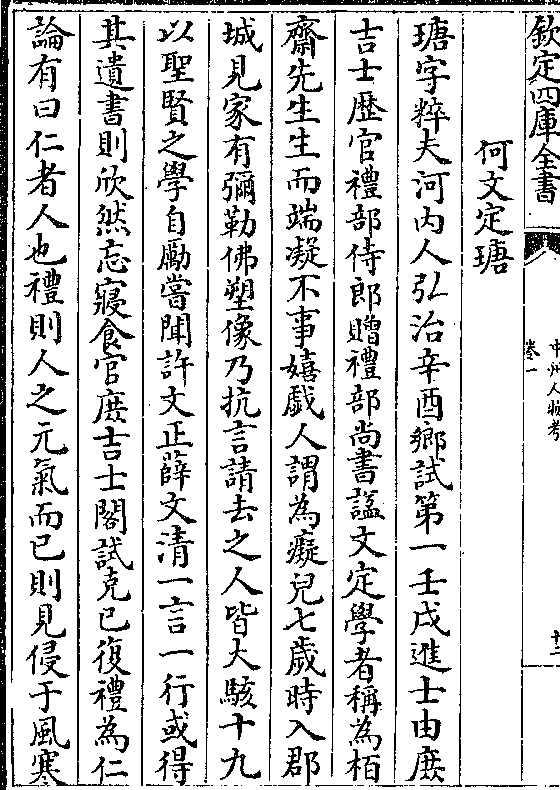 欽定四庫全書
中州人物考
卷一
十三
何文定瑭
瑭字粹夫河内人弘治辛酉鄉試第一壬戌進士由庶
吉士歷官禮部侍郎贈禮部尚書諡文定學者稱為栢
齋先生生而端凝不事嬉戲人謂為癡兒七歲時入郡
城見家有彌勒佛塑像乃抗言請去之人皆大駭十九
以聖賢之學自勵嘗聞許文正薛文清一言一行或得
其遺書則欣然忘寢食官庶吉士閣試克已復禮為仁
論有曰仁者人也禮則人之元氣而已則見侵于風寒